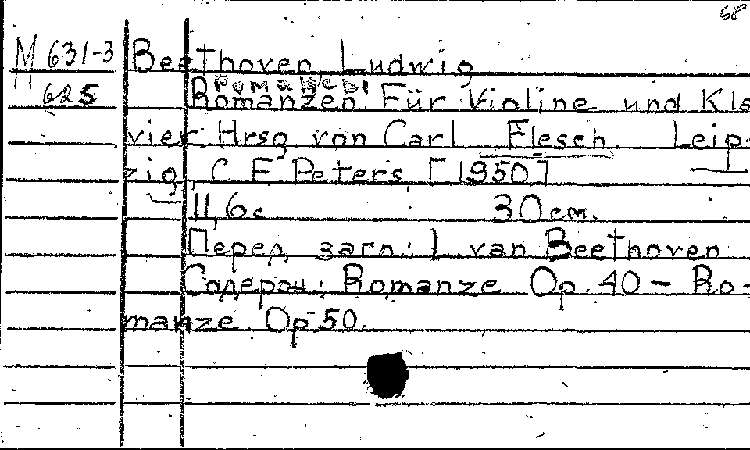 68
M 631-3
625
Beethoven Ludwig
Романсы
Romanzen Für Violine und Kla
vier Hrsg von Carl Flesch. Leip-
zig, C F Peters [1950]
11,6с 30 cm.
Перед загл: L van Beethoven
Содерж: Romanze Op 40 – Ro-
manze Op 50.